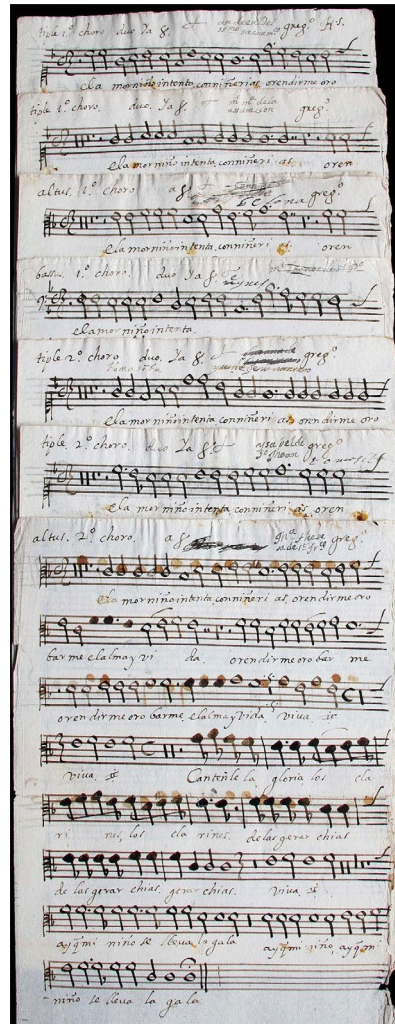 tiple 1º choro duo Ya 8. gregº
el amor niño intenta, con niñerias orendirme oro
tiple 1º choro. duo. Ya 8. mª de la assumcion gregº
el amor niño intenta, con niñerias, oren
altus. 1º choro. a 8 gregº
el amor niño intenta, con niñerias. oren
bassus. 1º choro. duo Ya 8
el amor niño intenta.
tiple 2º choro. duo. Ya 8. gregº
el amor niño intenta, con niñerias, orendirme oro
tiple 2º choro. duo Ya 8. gregº
el amor niño intenta, con niñerias, oren
altus. 2º choro. a 8 gregº
el amor niño intenta, con niñerias, orendirme oro
barme el alma y vida orendirme oro bar me
orendirme oro barme, el alma y vida, viva
viva, Cantenle la gloria los cla
rines, los cla rines. de las gerarchias
de las gerarchias. gerarchias. viva,
ay q mi niño se lleva la gala ay q mi niño, ay q mi
niño se lleva la gala